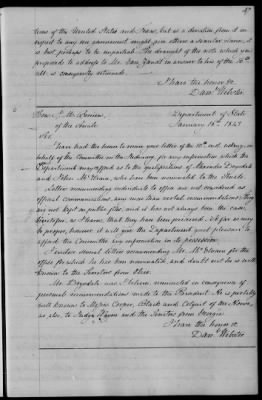 tions of the United States and Texas, but as a deviation from it in
respect to any one government might give others a similar claim, it
is best perhaps to be impartial. The draught of the note which you
proposed to address to Mr. Van Zandt in answer to his of the 16th
ult. is consequently returned.
I have the honor &c.
Danl. Webster.
Department of State
of the Senate. January 12th 1843
Sir:
I have had the honor to receive your letter of the 10th inst. asking, on
behalf of the Committee on the Judiciary, for any information which the
Department may afford as to the qualifications of Alexander Drysdale
and John McKean, who have been nominated to the Senate.
Letters recommending individuals to office are not considered as
official communications, any more than verbal recommendations. They
are not kept on public files, and it is not always the case,
therefore, as I know, that they can be preserved. As far as may
be proper, however it will give the Department great pleasure to
afford the Committee any information in its possession.
I enclose several letters recommending Mr. McKean for the
office for which he has been nominated, and doubt not he is well
known to the Senators from Ohio.
Mr. Drysdale was, I believe, nominated in consequence of
personal recommendations made to the President. He is probably
well known to Messrs Cooper, Black and Colquit of the House,
as also, to Judge Wayne and the Senators from Georgia.
I have the honor &c.
Danl. Webster